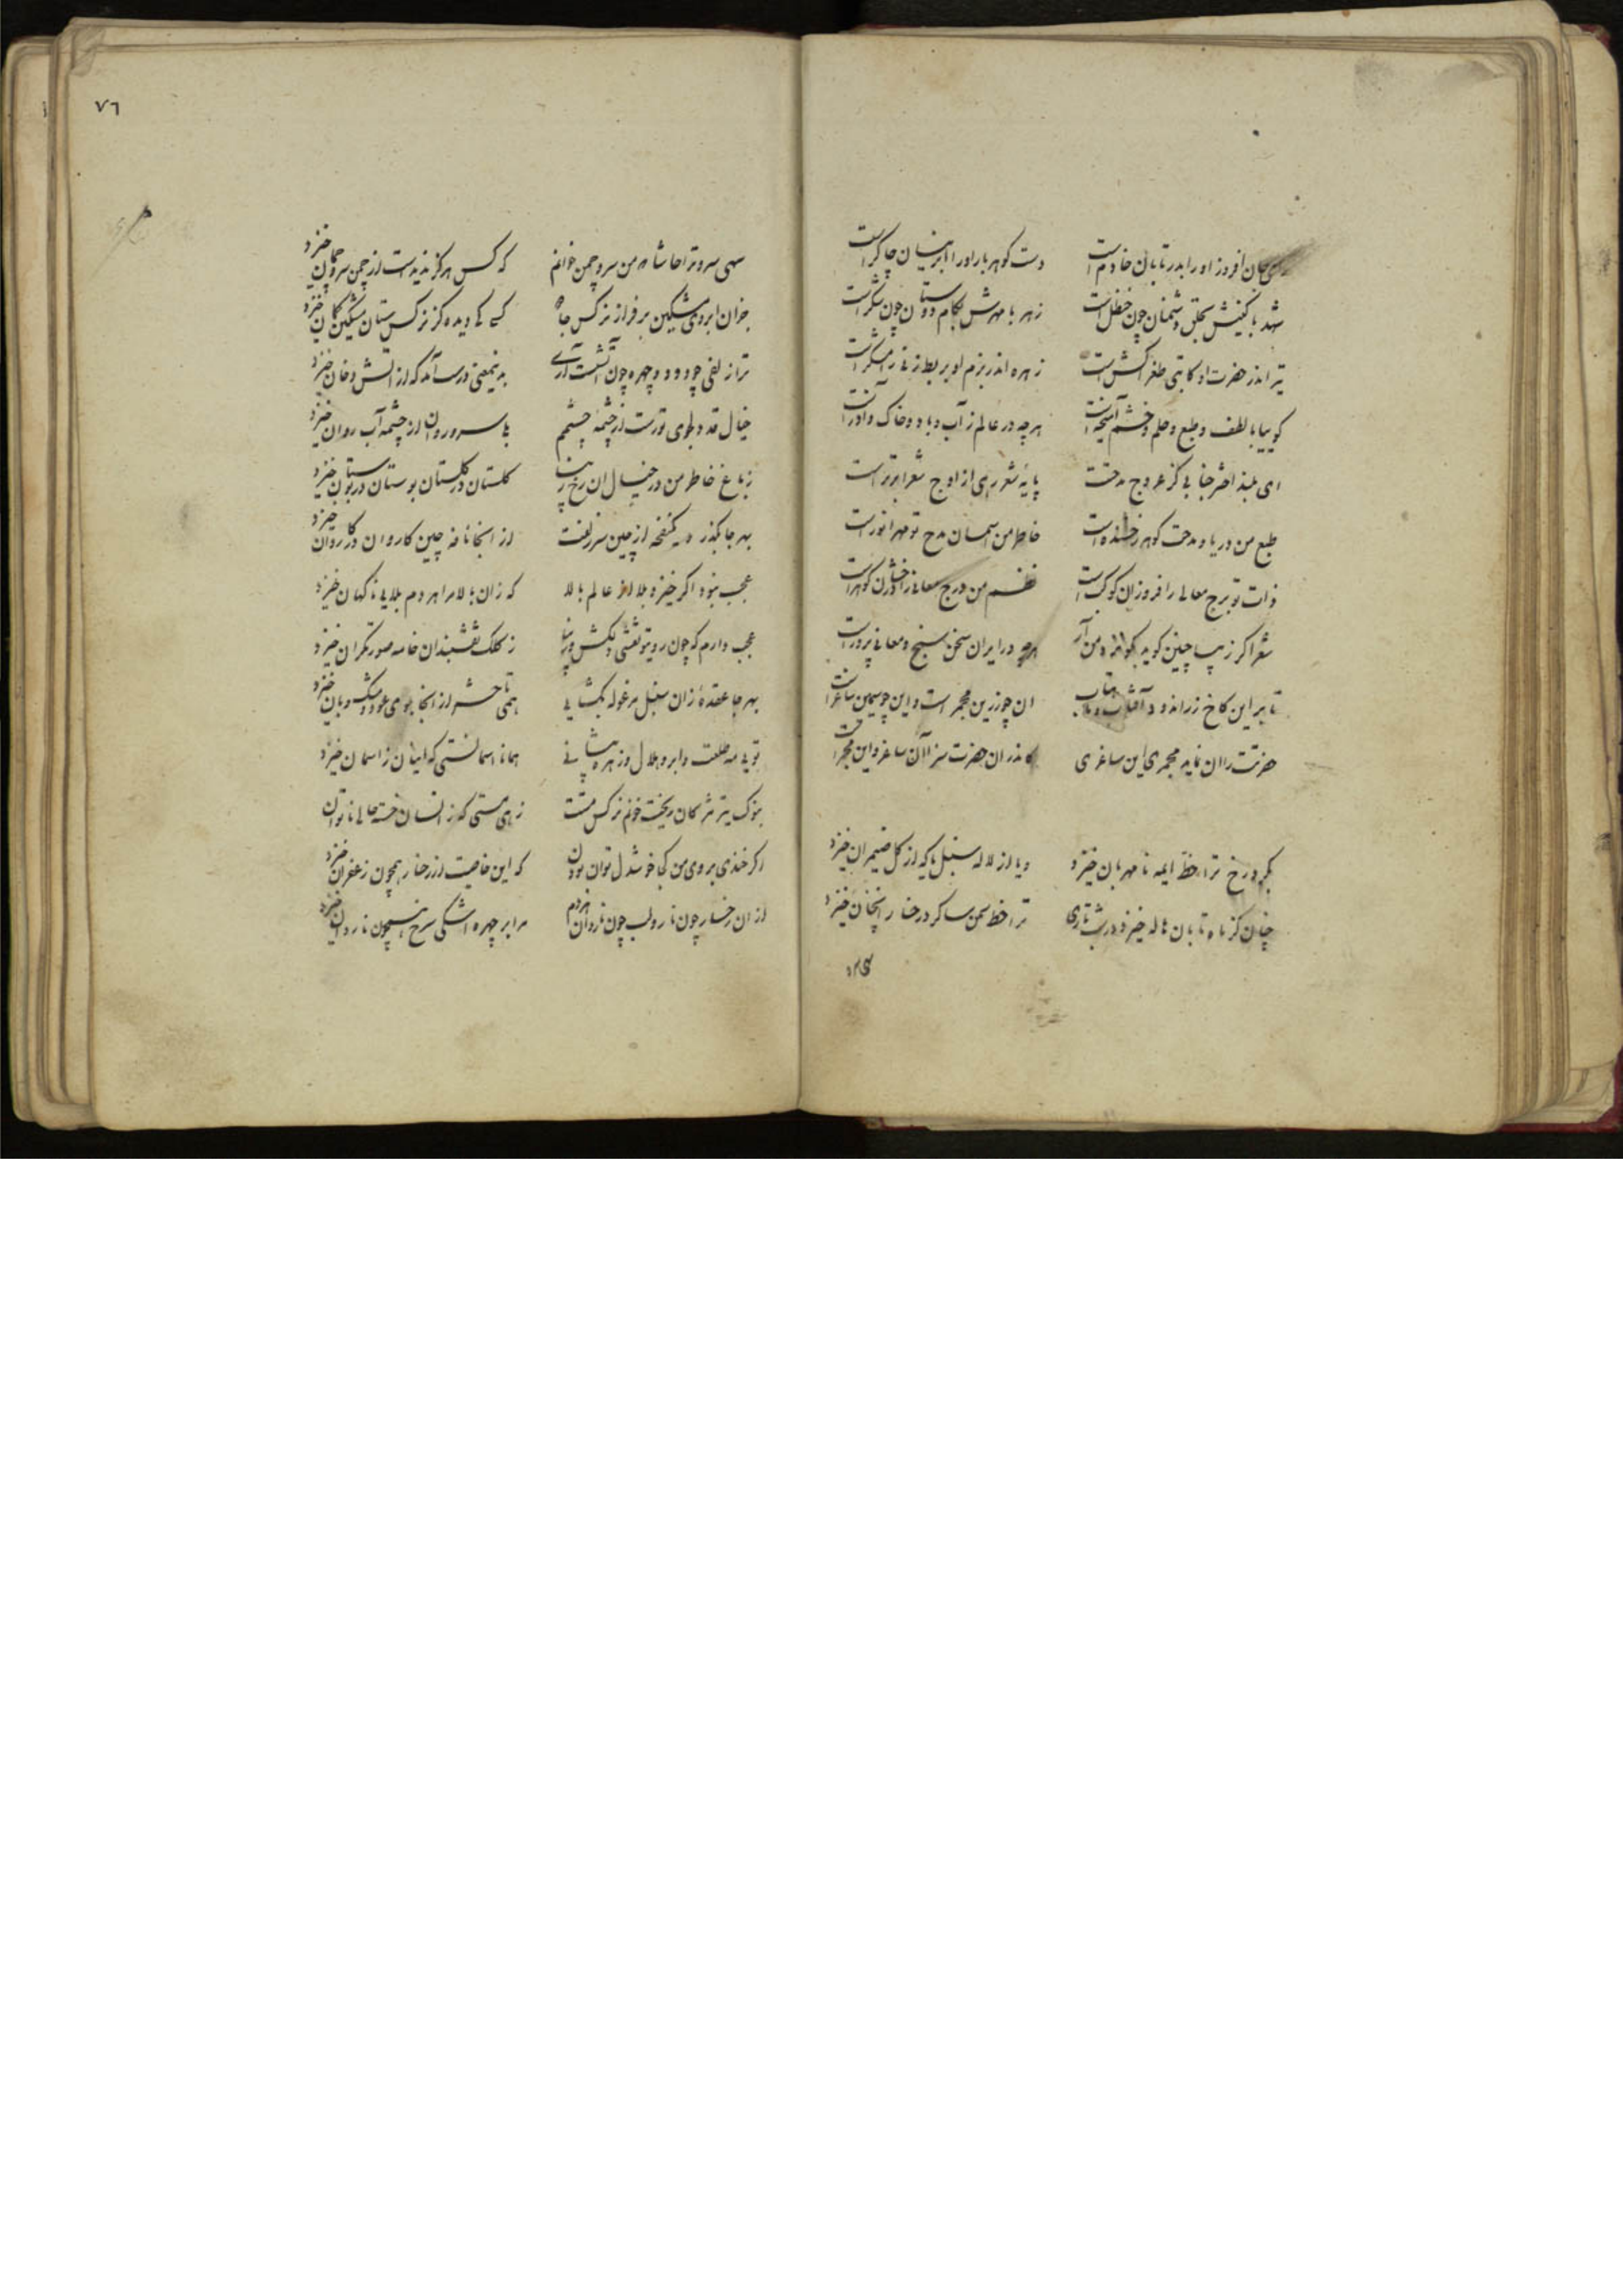 جان افروز او را بدر تابان خادم است دست کوهربار او را ابر نیسان چاکر است
شهد با کینش بحلق دشمنان چون حنظل است زهر با مهرش بکام دوستان چون شکر است
تیر اندر حضرت او کاتبی طغراکش است زهره اندر بزم او بربط زنی رامشکر است
کوییا با لطف و طبع و حلم و خشم آمیخته است هرچه در عالم ز آب و باد و خاک و آذر است
ای بلند اختر جنابی کز عروج مدحتت پایه شعر رهی از اوج شعرا برتر است
طبع من دریا و مدحت کوهر رخشنده است خاطر من آسمان مدح تو مهر انور است
ذات تو برج معالی را فروزان کوکب است نظم من درج معانی را درخشان کوهر است
شعر اکر زیبا چنین کوید کو از من آر هرچه در ایران سخن سنج و معانی پرور است
تا بر این کاخ زراندود آفتاب و ماهتاب ان چو زرین مجمر است و این چو سیمین ساغر است
حضرتت را ان نماید مجمری این ساغری کاندران حضرت سزا آن ساغر و این مجمر است
بکرد رخ ترا خط ایمه نامهربان خیزد و یا از لاله سنبل یا که از کل ضیمران خیزد
چنان کز ماه تابان هاله خیزد در شب تاری ترا خط سمن سا کرد رخسار انچنان خیزد
سهی
٧٦
سهی سرو ترا حاشا که من سرو چمن خوانم که کس هرکز ندیده است از چمن سرو چمان خیزد
بجز ان ابروی مشکین بر فراز نرکس جادو کسی کی دیده کز نرکس ستان مشکین کمان خیزد
ترا زلفی چو دود و چهره چون آتشت آری بدینمعنی درست آمد که از اتش دخان خیزد
خیال قد دلجوی تورست از چشمه چشمم بلی سرو روان از چشمه آب روان خیزد
ز باغ خاطر من در خیال ان رخ زیبا کلستان در کلستان بوستان در بوستان خیزد
بهر جا بکذرد یک نفخه از چین سر زلفت از انجا نافه چین کاروان در کاروان خیزد
عجب نبود اکر خیزد بلا از عالم بالا که زان بالا مرا هر دم بلایی ناکهان خیزد
عجب دارم که چون رویتو نقشی دلکش و زیبا ز کلک نقشبندان خامه صورتکران خیزد
بهر جا عقده زان سنبل مرغوله بکشایی همی تا حشر از انجا بوی عود و مشک و بان خیزد
تویی مه طلعت و ابرو هلال و زهره پیشانی همانا اسمانستی که اینان ز اسمان خیزد
بنوک تیر مژکان ریخت خونم نرکس مستت زهی مستی که ز انسان خسته حالی ناتوان
اکر خندی بروی من کجا خوشدل توان بودن که این خاصیت از رخسار همچون زعفران خیزد
از ان رخسار چون نار و لب چون ناردان هردم مرا بر چهره اشکی سرخ همچون ناردان خیزد